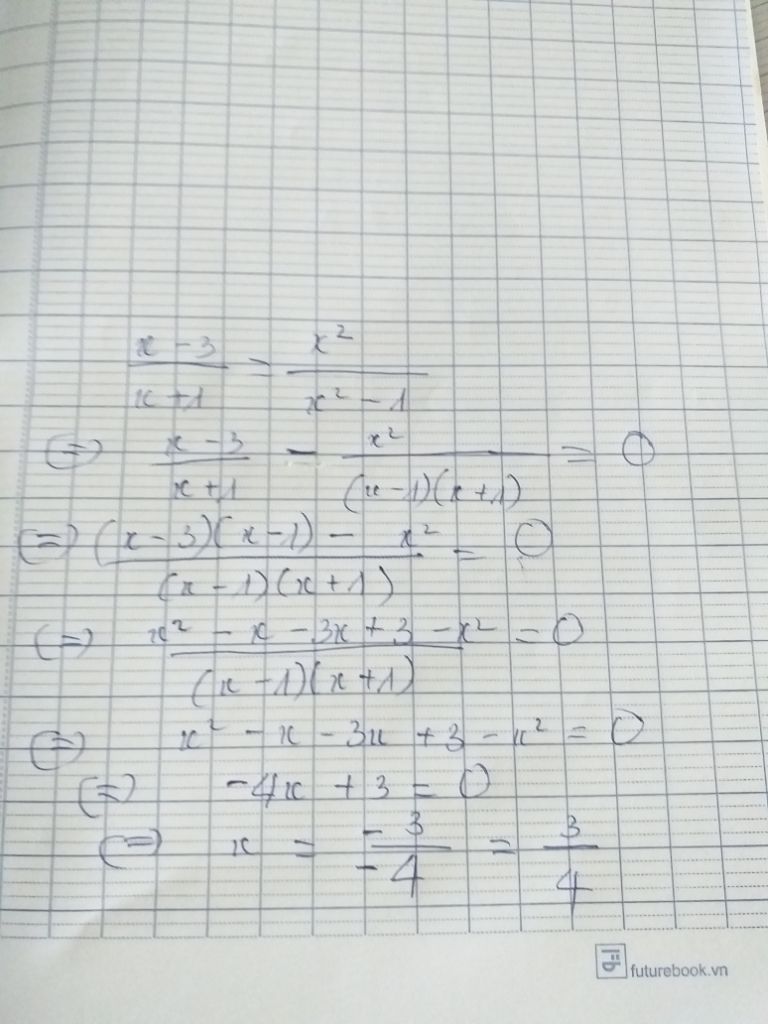 x - 3 / x + 1 = x² / x² - 1
(=) x - 3 / x + 1 - x² / (x - 1)(x + 1) = 0
(=) (x - 3)(x - 1) - x² / (x - 1)(x + 1) = 0
(=) x² - x - 3x + 3 - x² / (x - 1)(x + 1) = 0
(=) x² - x - 3x + 3 - x² = 0
(=) -4x + 3 = 0
(=) x = -3 / -4 = 3 / 4
futurebook.vn